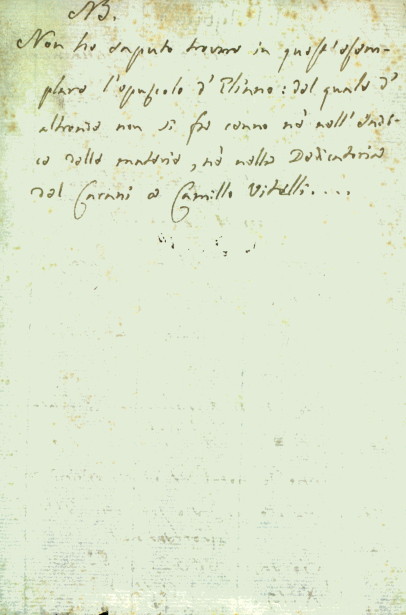 NB.
Non ho saputo trovare in quest'esem-
plare l'opuscolo d'Eliano: del quale d'
altronde non si fa cenno nè nell'Indi-
ce delle materie, nè nella Dedicatoria
del Carani a Camillo Vitelli....